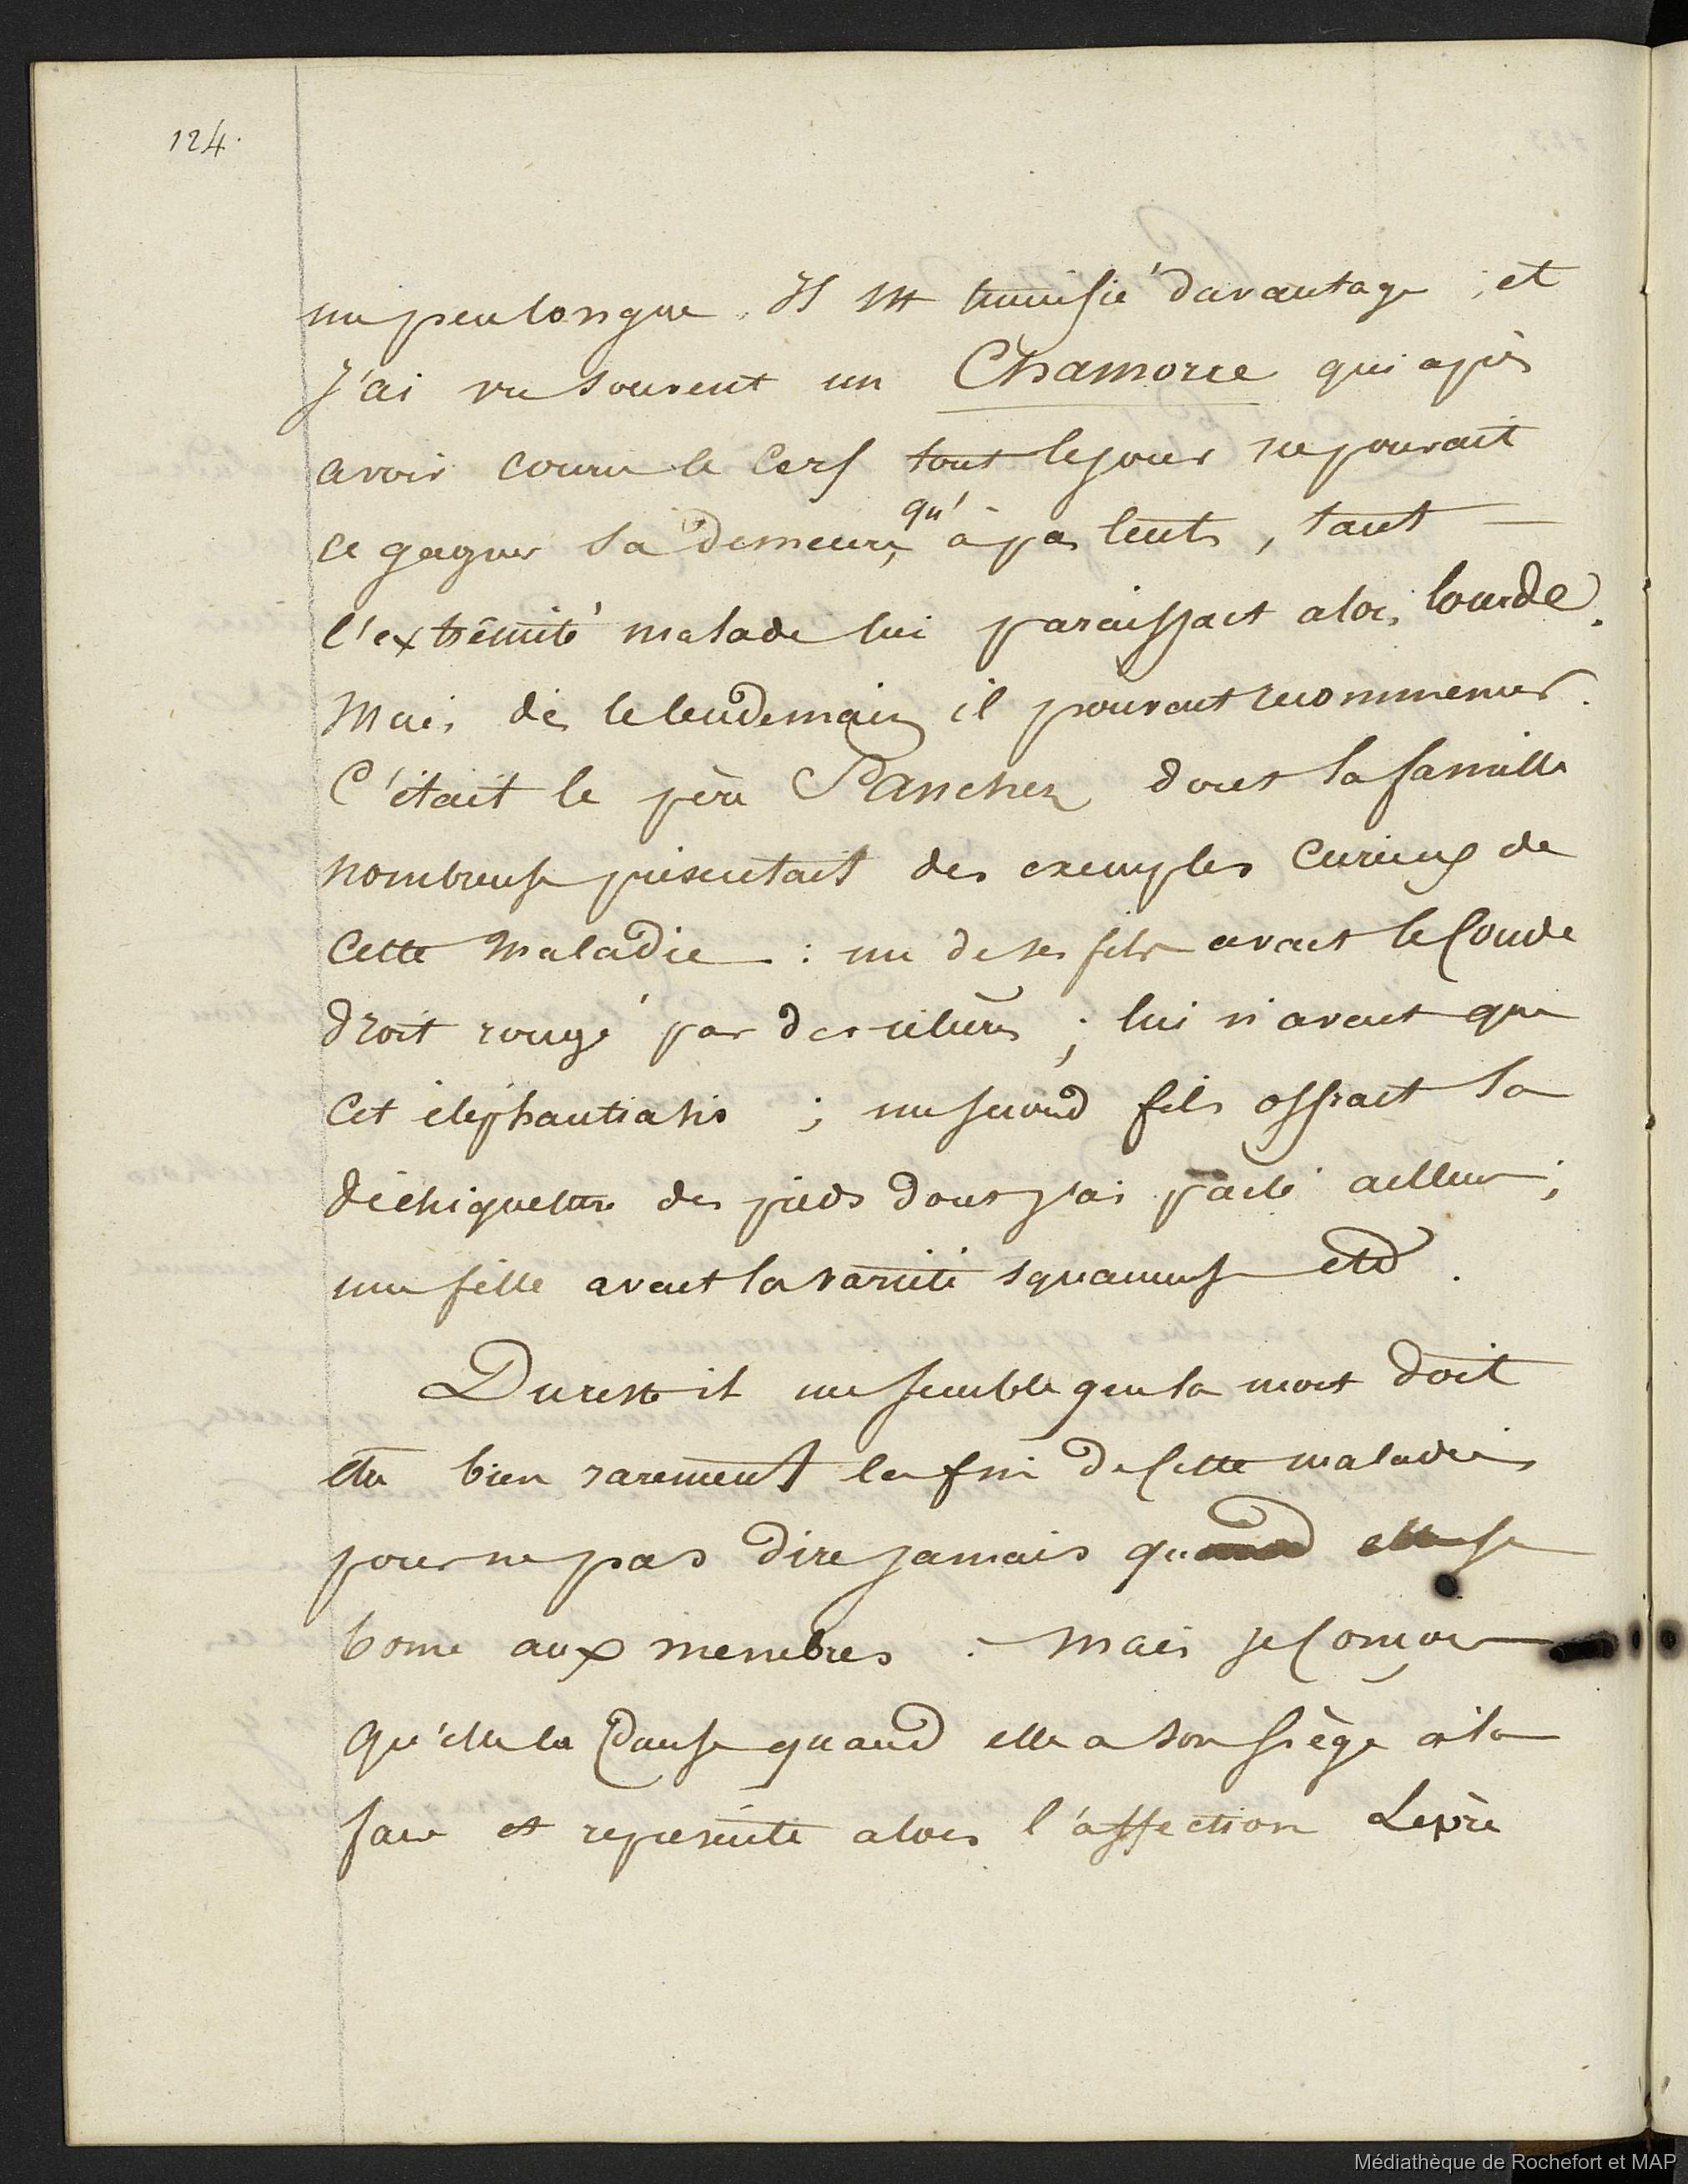 124.
un peu longue. Il est tumifié davantage ; et
J'ai vu souvent un Chamorre qui après
avoir couru le Cerf tout le jour ne pouvait
regagner sa demeure, qu' à pas lents, tant
l'extrêmité malade lui paraissait alors lourde.
Mais dès le lendemain il pouvait recommencer.
C'était le père Sanchez dont la famille
nombreuse présentait des exemples curieux de
Cette Maladie : un de ses fils avait le Coude
droit rongé par des ulcères ; lui n'avait que
Cet éléphantiasis ; un second fils offrait la
déchiqueture des pieds dont j'ai parlé ailleurs ;
une fille avait la variété squameuse etc.
Du reste il me semble que la mort doit
être bien rarement la fin de Cette maladie
pour ne pas dire jamais quand elle se
borne aux membres : Mais je Conçois
qu'elle la Cause quand elle a son siège à la
face et représente alors l'affection Lèpre
Médiathèque de Rochefort et MAP